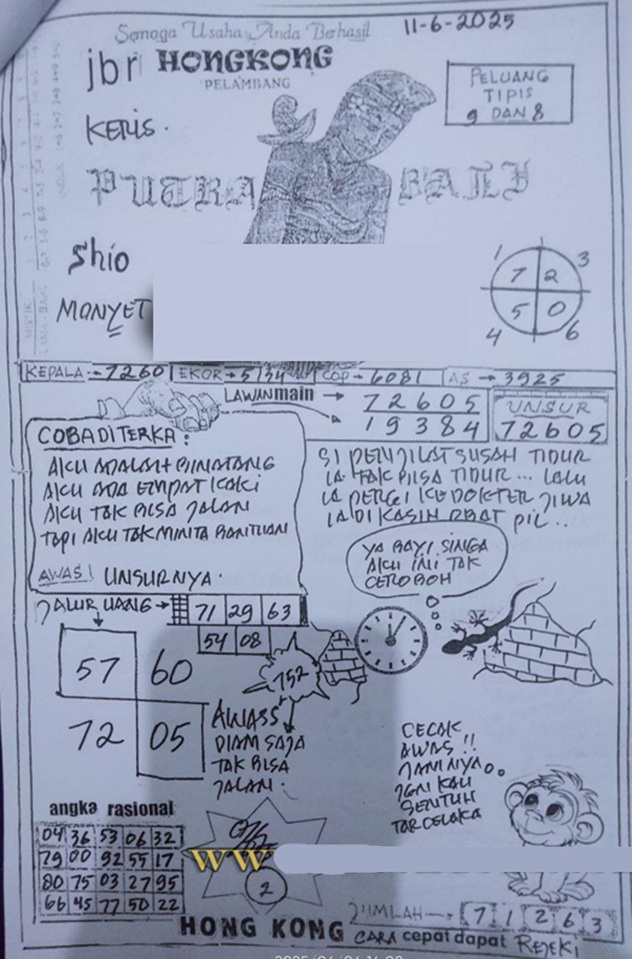 Semoga Usaha Anda Berhasil
11-6-2025
jbr HONGKONG
PELAMBANG
PELUANG
TIPIS
9 DAN 8
KERIS.
PUTRA BALI
Shio
MONYET
1 3
7 2
5 0
4 6
KEPALA:-7260 EKOR→5134 COP→6081 AS→3925
LAWAN main → 72605
19384
UNSUR
72605
COBA DITERKA:
AKU ADALAH BINATANG
AKU ADA EMPAT KAKI
AKU TAK BISA JALAN
TAPI AKU TAK MINTA BANTUAN
AWAS! UNSURNYA.
SI PENJILAT SUSAH TIDUR
IA TAK BISA TIDUR... LALU
IA PERGI KE DOKTER JIWA
IA DI KASIH OBAT PIL..
YA BAYI SINGA
AKU INI TAK
CEROBOH
JALUR UANG→ 71 29 63
54 08
57 60
72 05
752
AWASS
DIAM SAJA
TAK BISA
JALAN.
CECAK
AWAS!!
JAMNYA
SENTUH
angka rasional
04 36 53 06 32
79 00 92 55 17
80 75 03 27 95
66 45 77 50 22
WW
2
JUMLAH→ 7 1 2 6 3
HONG KONG CARA cepat dapat REJEKI